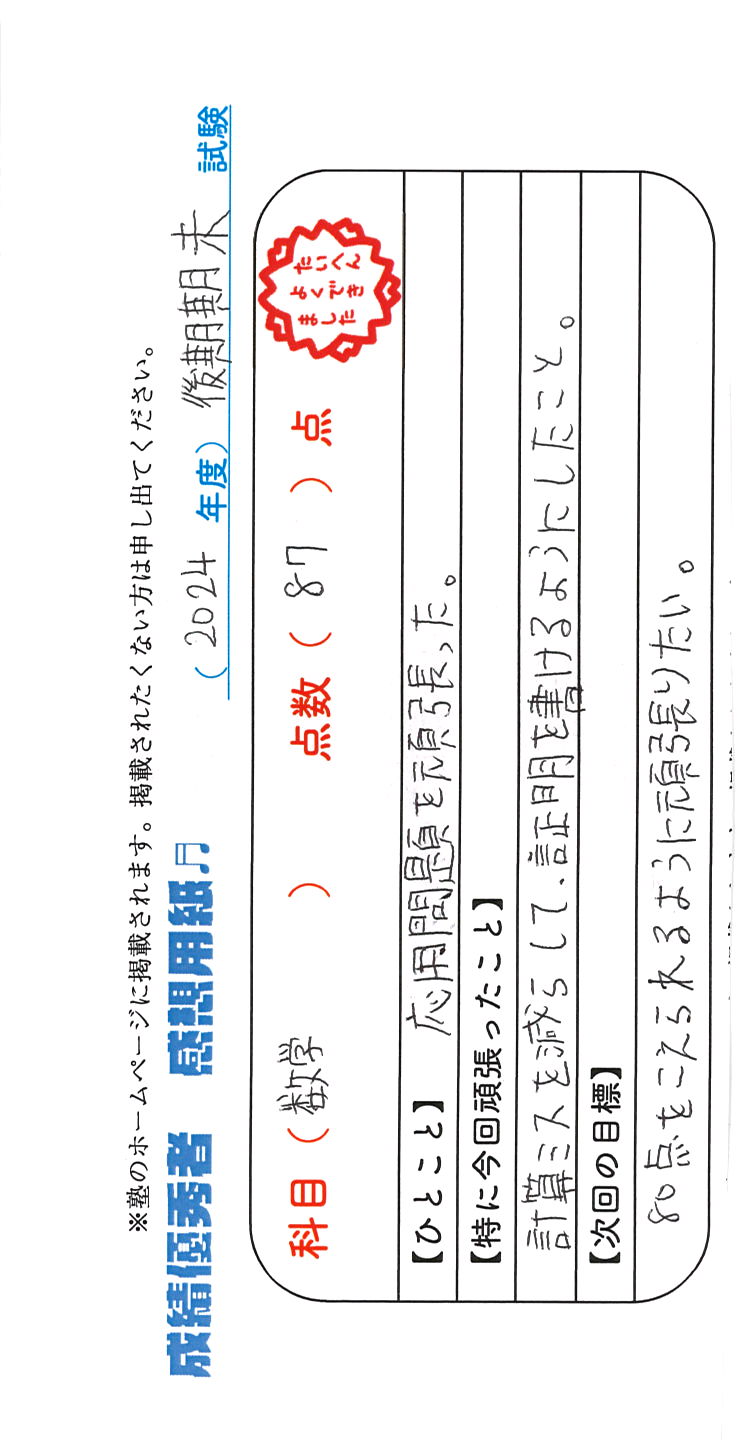 ※塾のホームページに掲載されます。掲載されたくない方は申し出てください。
成績優秀者 感想用紙♬
(2024 年度) 後期期末 試験
科目(数学) 点数(87)点
たいへん
よくでき
ました
【ひとこと】 応用問題を頑張った。
【特に今回頑張ったこと】
計算ミスを減らして、証明を書けるようにしたこと。
【次回の目標】
80点をこえられるように頑張りたい。